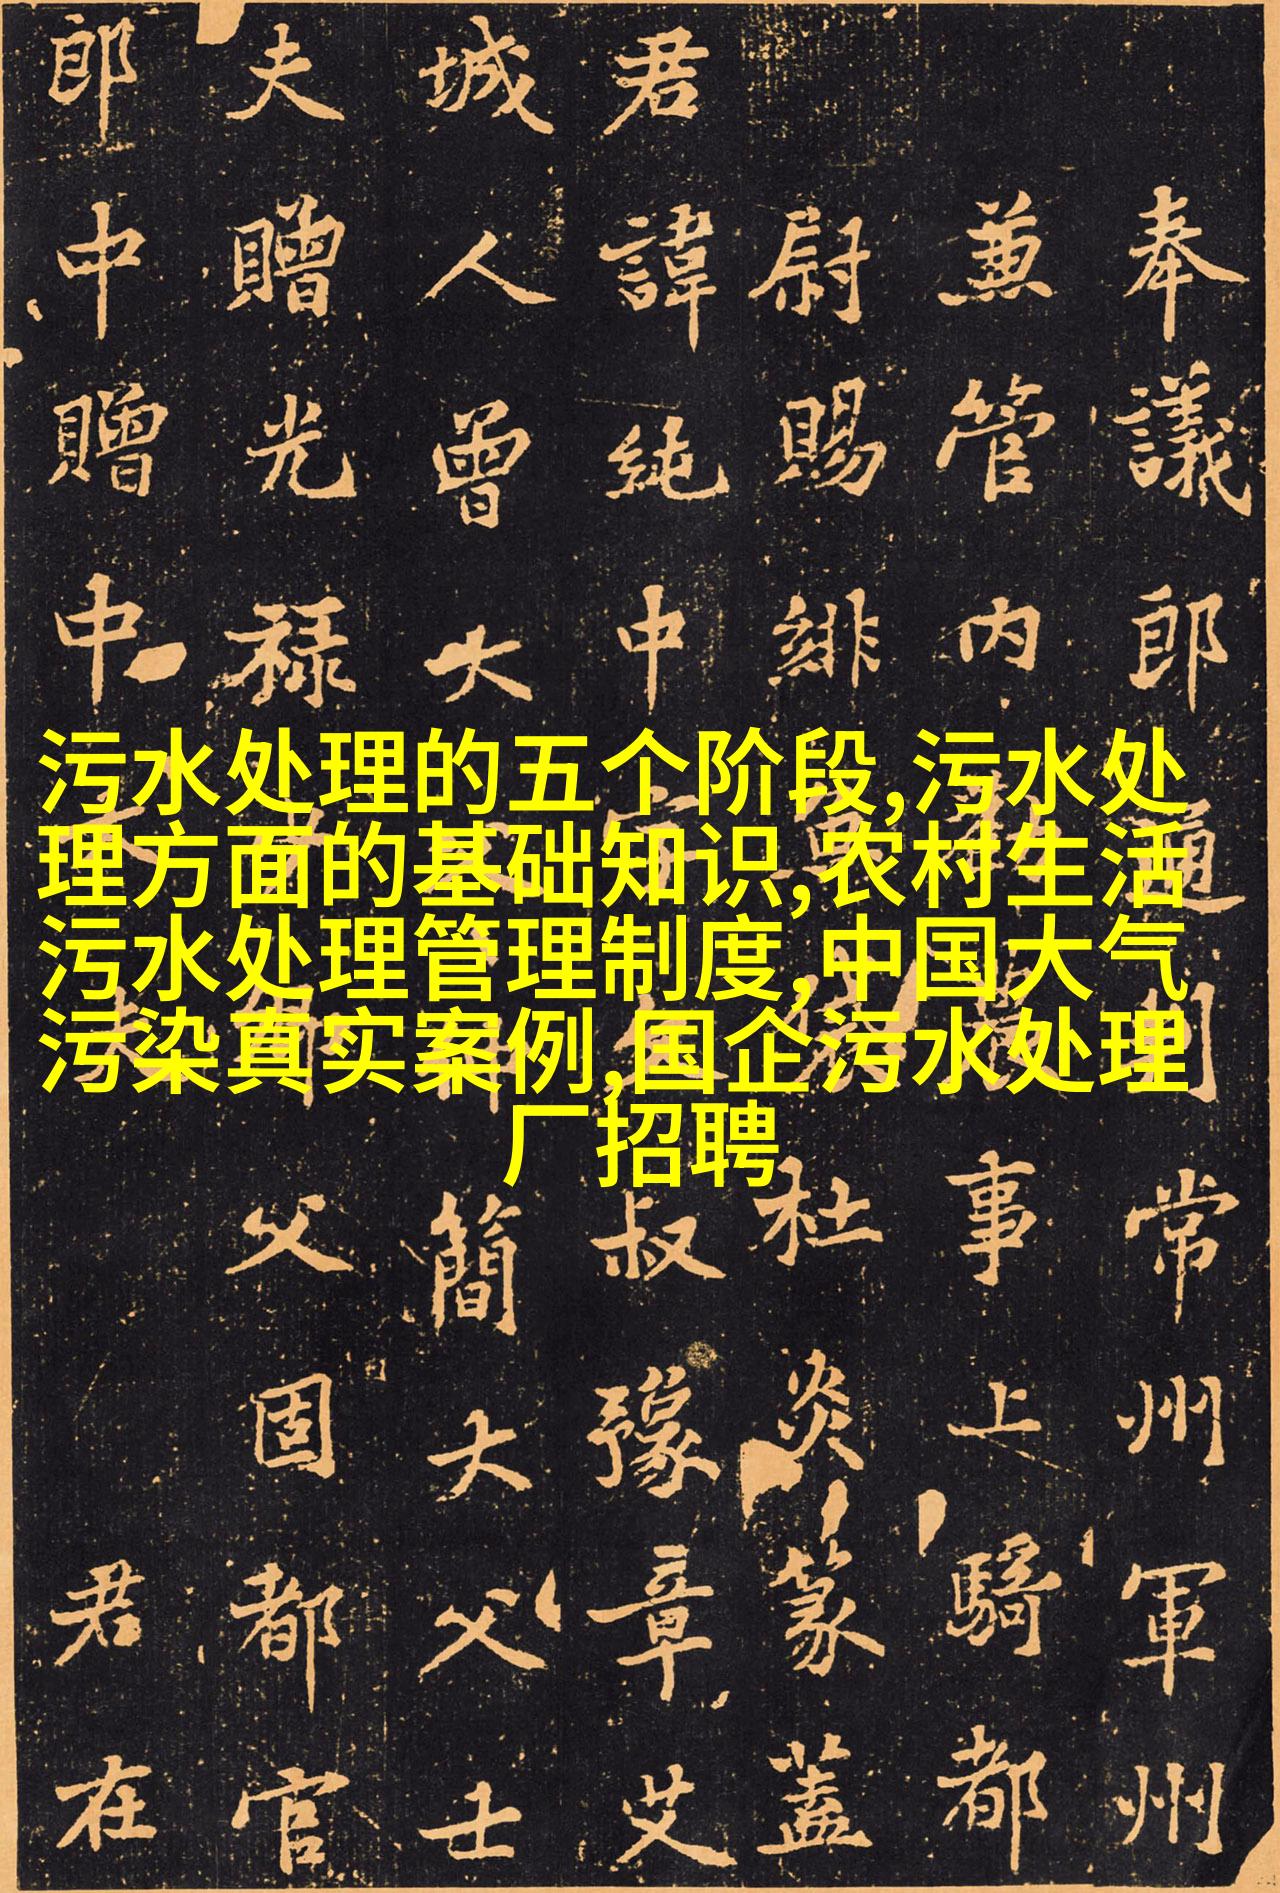 污水处理的五个阶段,污水处
理方面的基础知识,农村生活
污水处理管理制度,中国大气
污染真实案例,国企污水处理
厂招聘
奉議郎通判常州軍州
兼管内事上騎都
尉賜緋杜炎篆蓋
君諱純中叔豫章艾
城人曾大簡大父士
夫贈光禄父固都官
郎中贈中君在